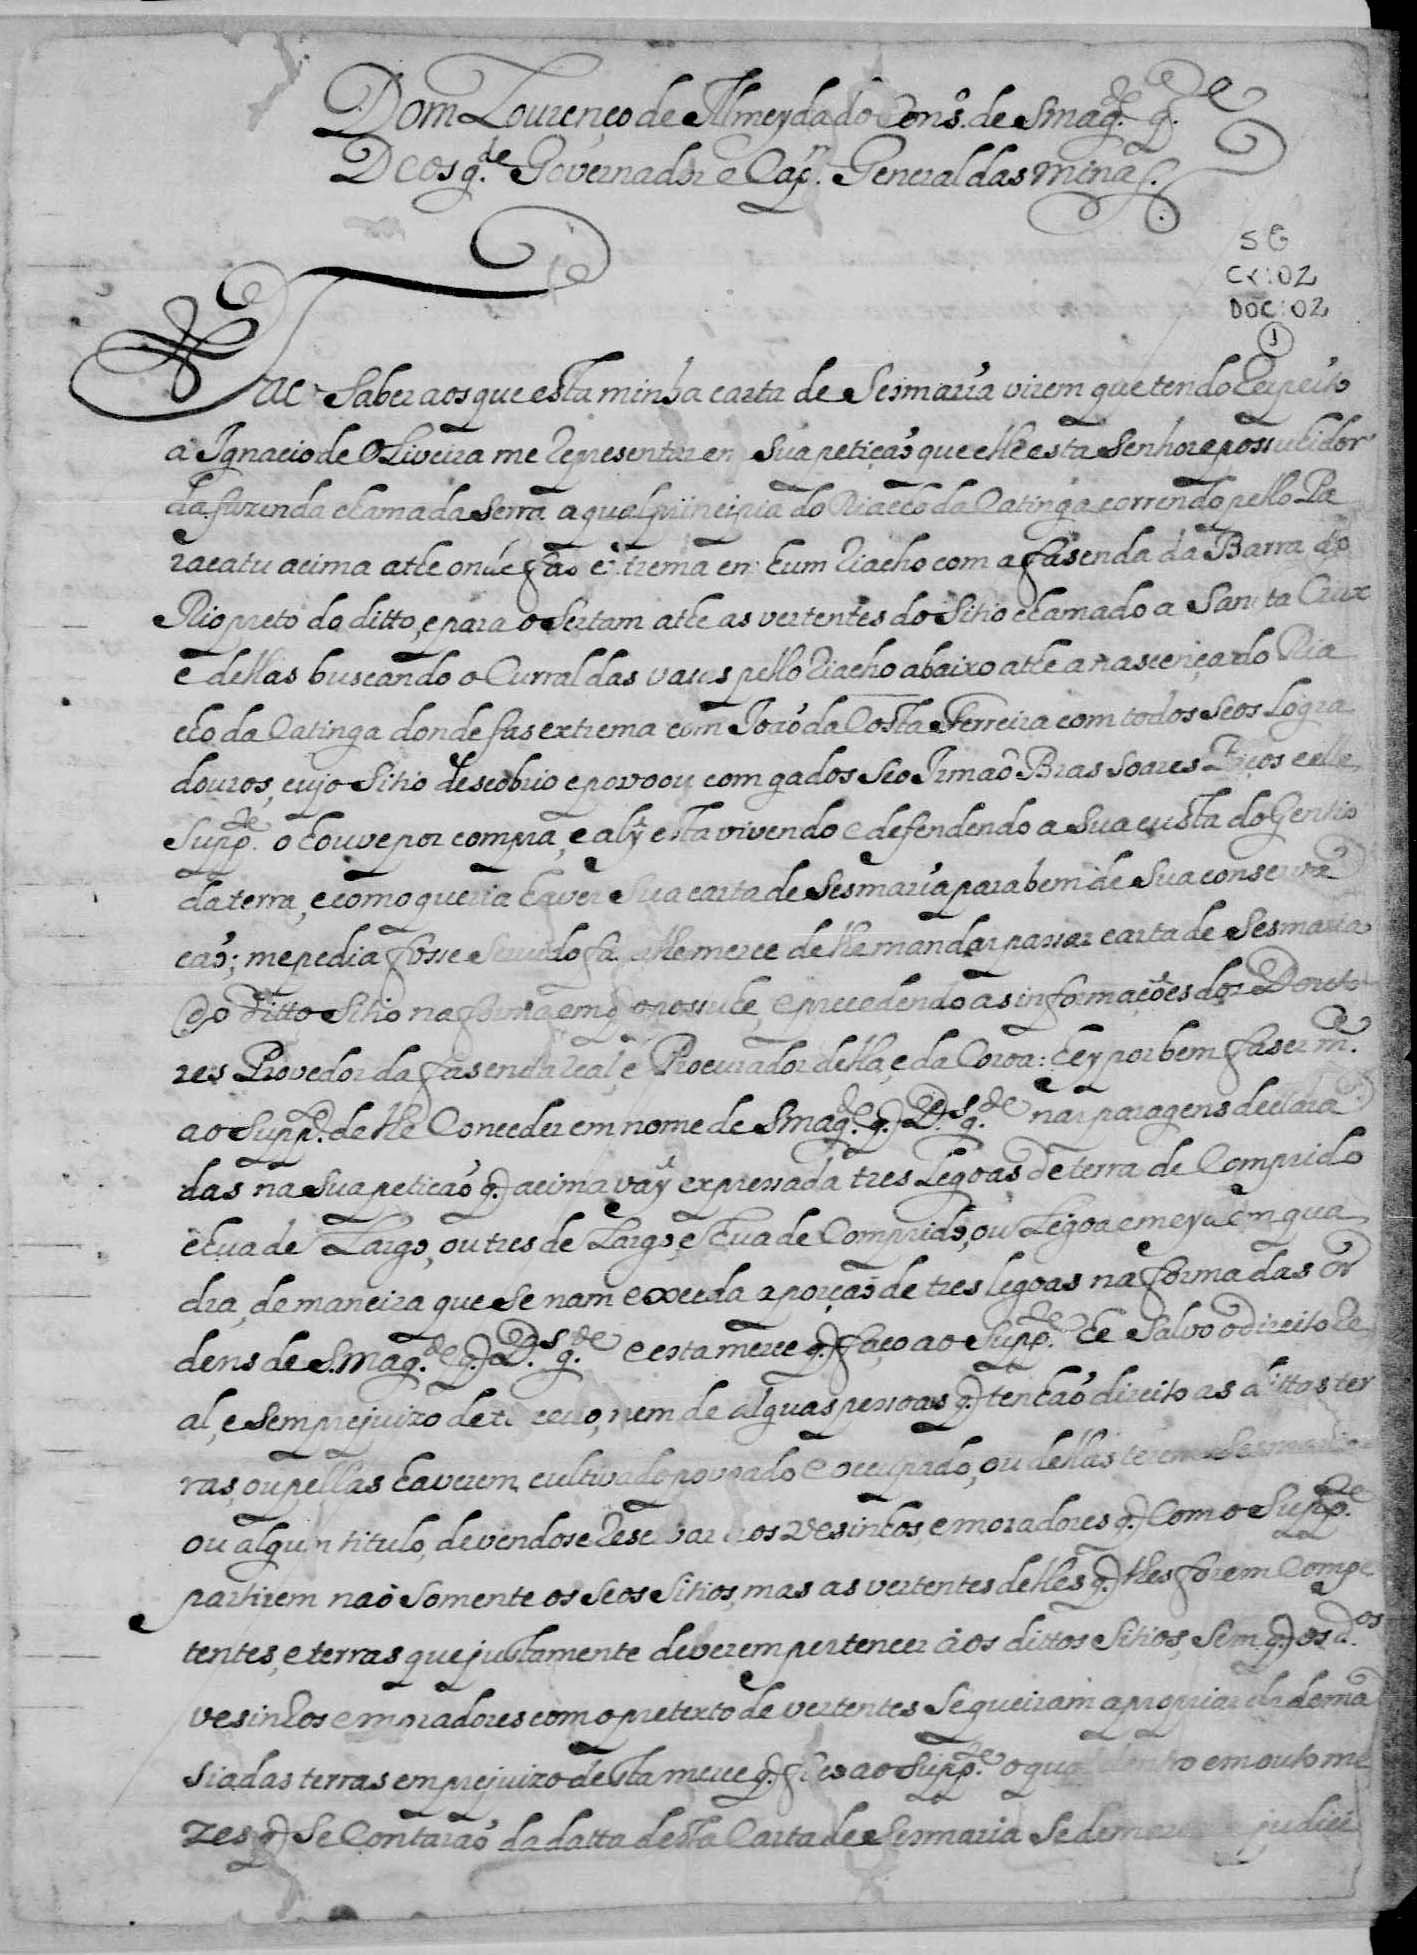 Dom Lourenço de Almeyda do Cons.º de Smag.de q.
Deos g.de Governador e Cap.n General das Minas.
SG
CX:02
DOC:02
1
Faço Saber aos que esta minha carta de Sesmaria virem que tendo respeito
a Ignacio de Oliveira me representar em Sua petiçaõ que elle esta Senhor e possuhidor
da fazenda chamada Serra a qual principia do Riacho da Catinga correndo pello Pa
racatu acima athe onde fas extrema em hum riacho com a fasenda da Barra do
Rio preto do ditto, e para o Sertam athe as vertentes do Sitio chamado a Santa Crux
e dellas buscando o Curral das vacas pello riacho abaixo athe a nascença do Ria
cho da Catinga donde fas extrema com Joaõ da Costa Ferreira com todos Seos Logra
douros, cujo Sitio descobrio e povoou com gados Seo Irmaõ Bras Soares e elle
Supp.de o houve por compra, e ahy esta vivendo e defendendo a Sua custa do Gentio
da terra, e como queria haver Sua carta de Sesmaria para bem de Sua conserva
caõ; me pedia fosse Servido faserlhe merce de lhe mandar passar carta de Sesmaria
do ditto Sitio na forma em q o possuhe, e precedendo as informações dos Douto
res Provedor da fasenda real, e Procurador della, e da Coroa: hey por bem faser m.ce
ao Supp.de de lhe Conceder em nome de Smag.de q. D.s g.de nas paragens declara
das na Sua petiçaõ q. acima vay expressada tres Legoas de terra de Comprido
e hua de Largo, ou tres de Largo, e hua de Comprido, ou Legoa e meya em qua
dra, de maneira que Se nam exceda a porçaõ de tres legoas na forma das or
dens de S.mag.de q. D.s g.de e esta merce q. faço ao Supp.de he Salvo o direito Re
al, e Sem prejuizo de terceiro, nem de alguas pessoas q. tenhaõ direito as dittas ter
ras, ou pellas haverem cultivado povoado e occupado, ou dellas terem Sesmaria
ou algum titulo, devendose reservar aos Vesinhos, e moradores q. Com o Supp.de
partirem naõ Somente os Seos Sitios, mas as vertentes delles q. lhes forem Compe
tentes, e terras que justamente deverem pertencer aos dittos Sitios, Sem q. os d.os
vesinhos e moradores com o pretexto de vertentes Se queiram apropriar da dema
siadas terras em prejuizo desta merce q. faço ao Supp.de o qual dentro em outo me
zes q. Se Contaraõ da datta desta Carta de Sesmaria Se demar judici